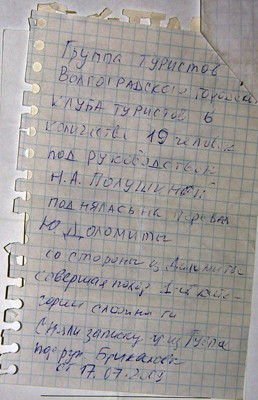 Группа туристов
Волгоградского городск
клуба туристов в
количестве 19 человек
под руководством
Н.А. Полушкиной
поднялась на перевал
Ю. Доломиты
со стороны
совершая поход 1-й кате-
гории сложности
Сняли записку группы
под рук.
от 17.07.2009